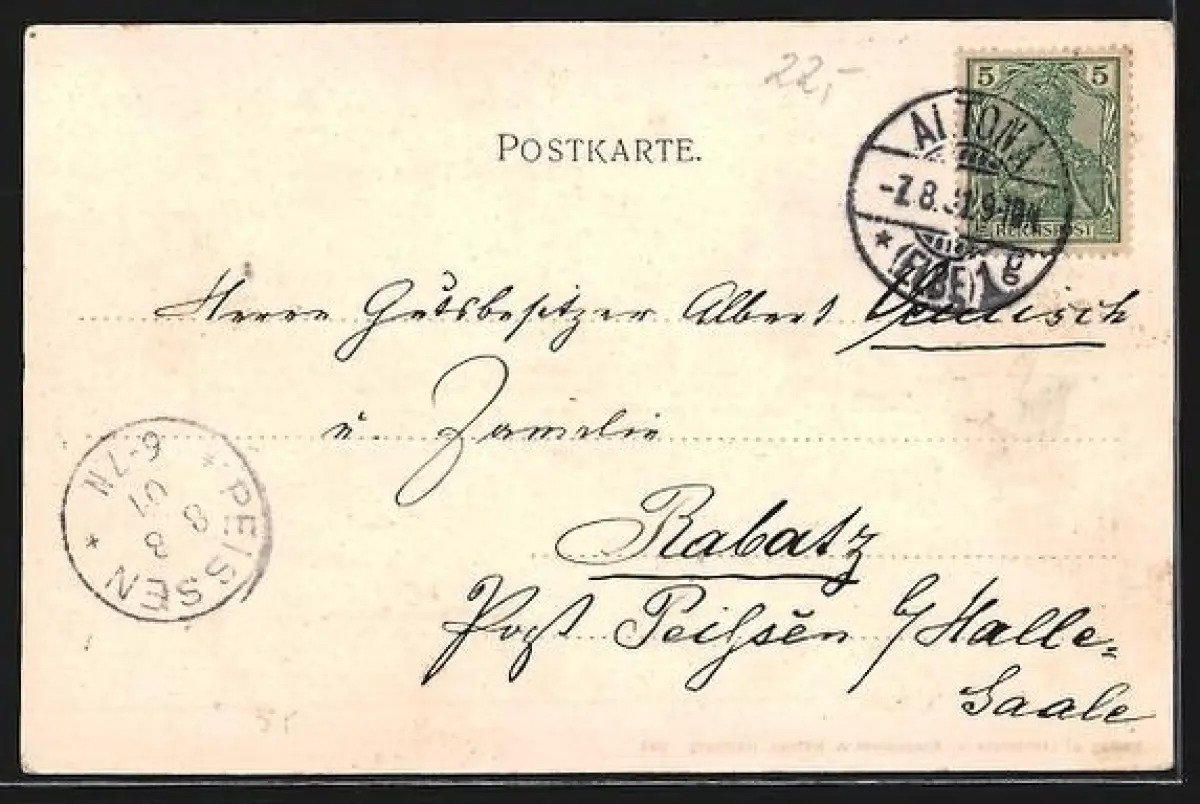 22,-
POSTKARTE.
5 5
REICHSPOST
ALTONA
-7.8. 9-10N
* (ELBE) 1 g
Herrn Gutsbesitzer Albert
u. Familie
* PEISSEN *
8 8
01
6-7N
Rabatz
Post Peißen b/ Halle-
Saale